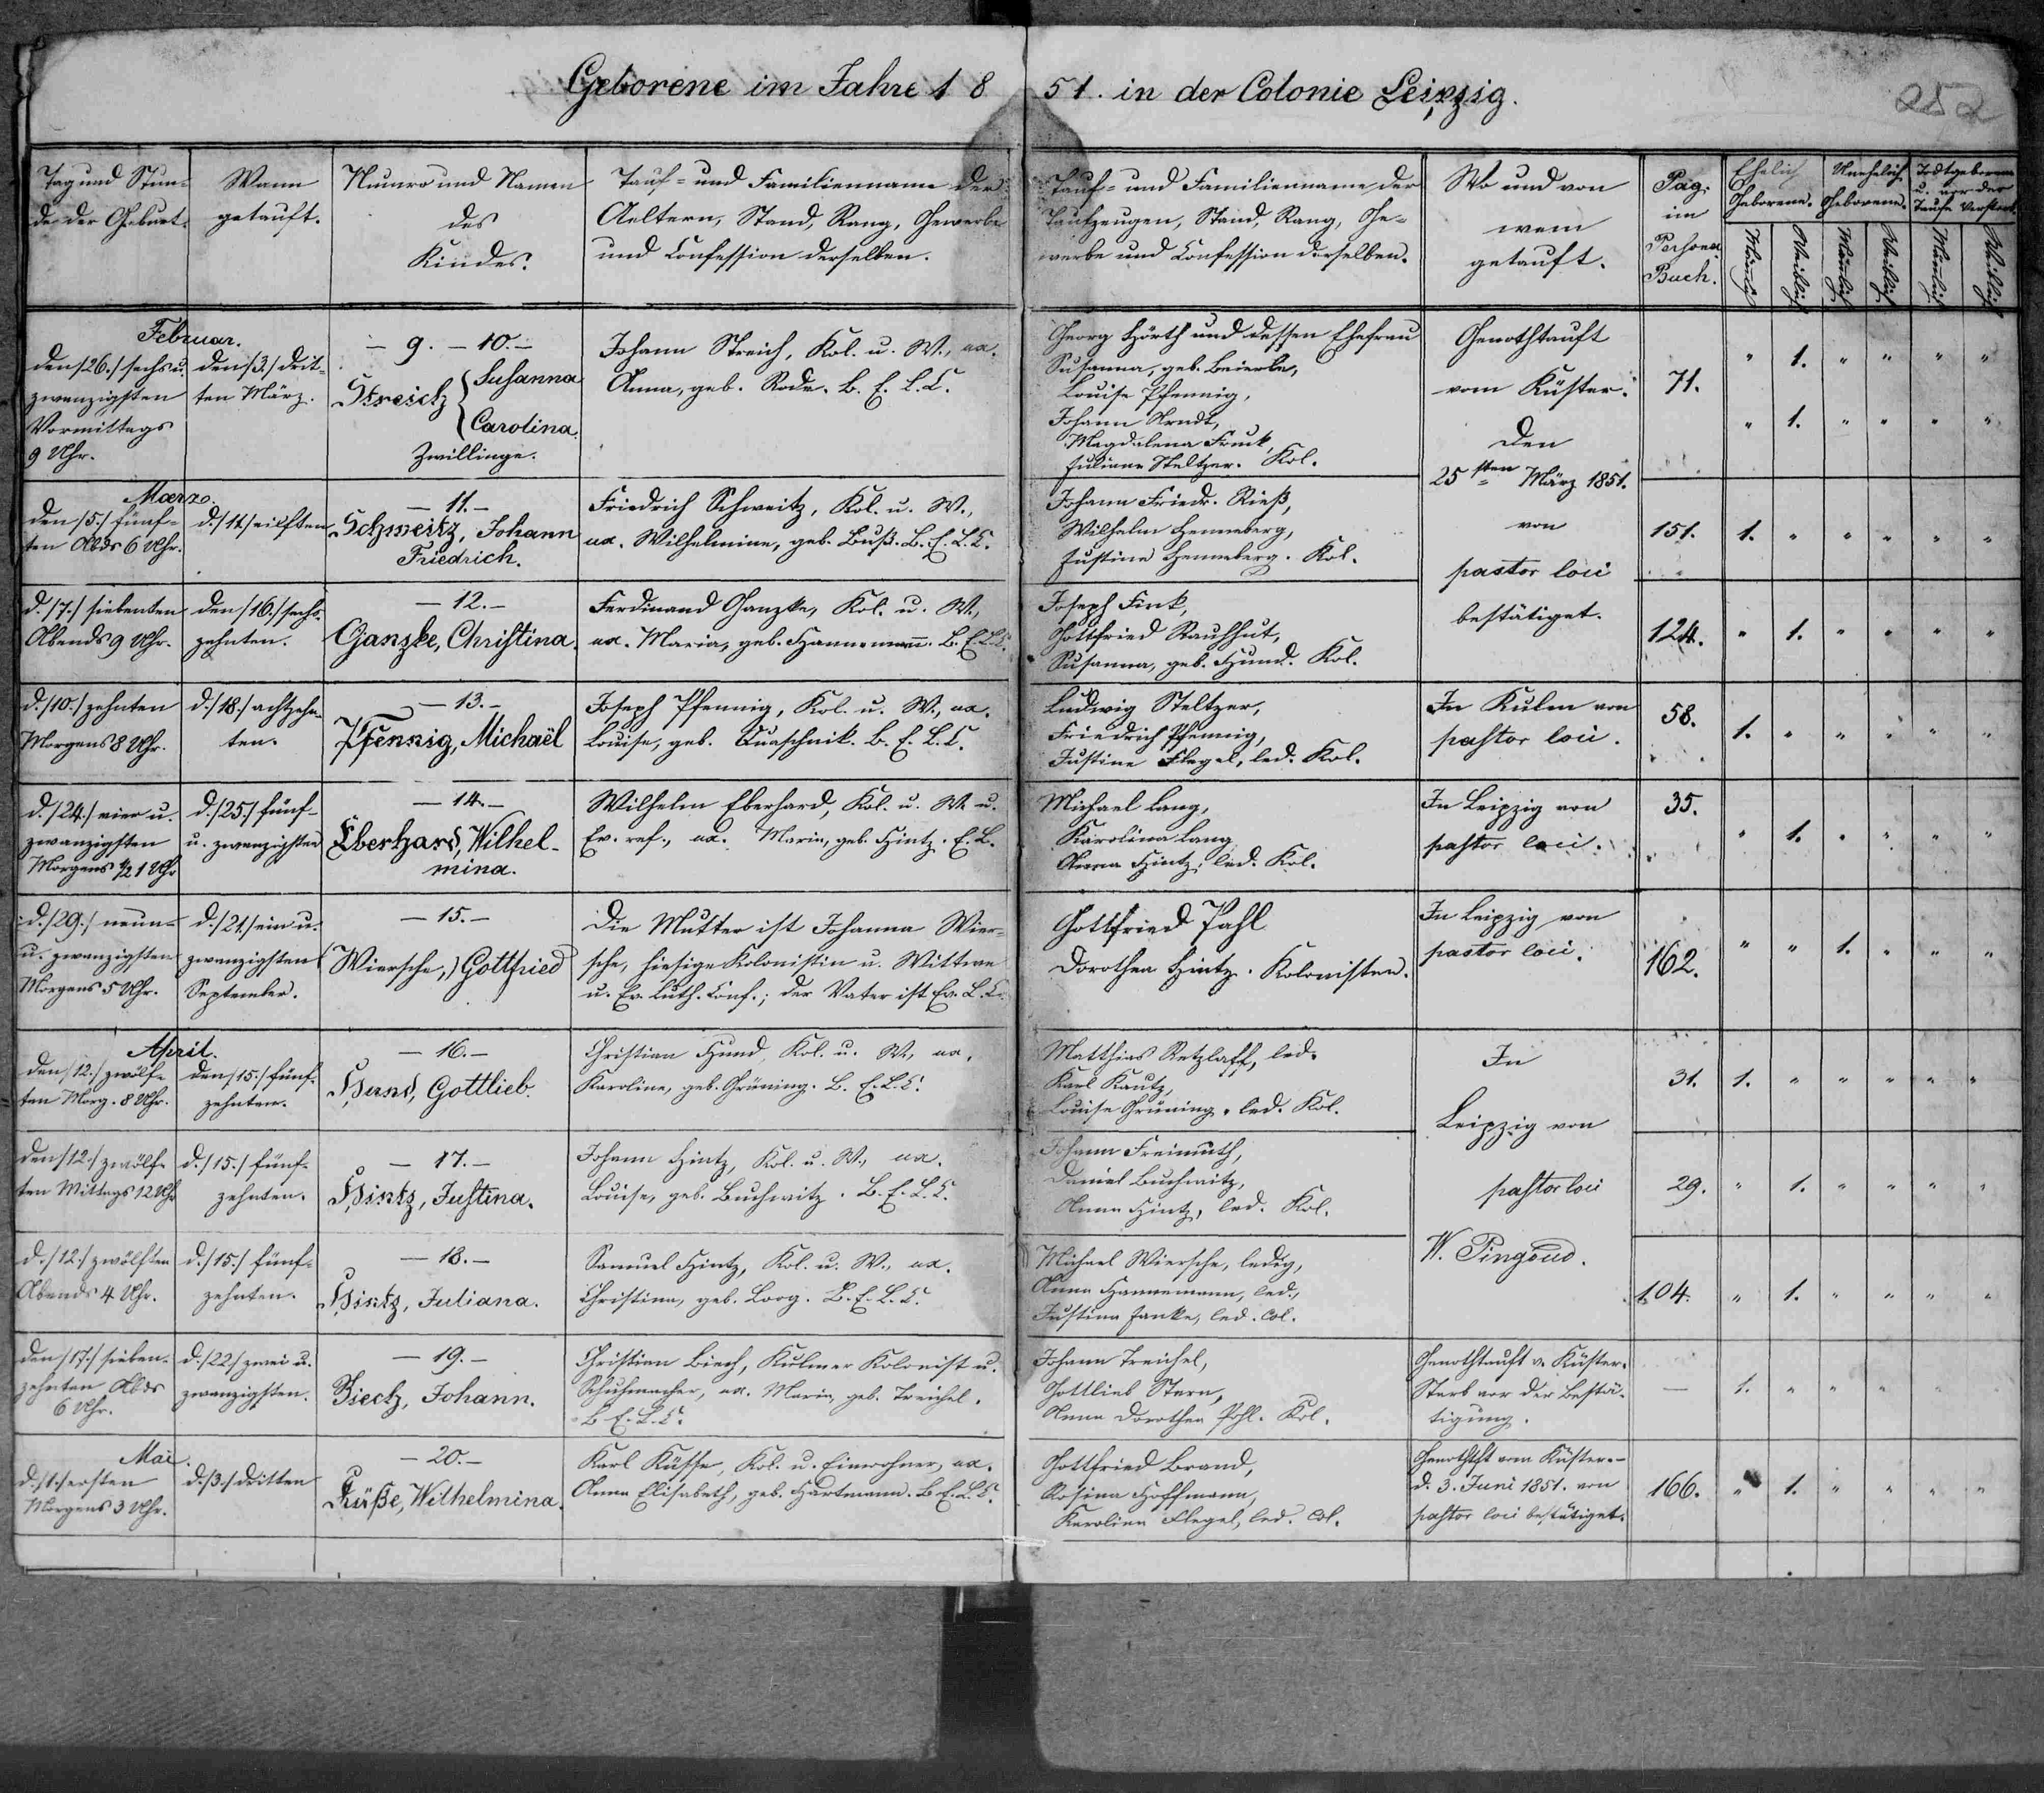 Geborene im Jahre 1851. in der Colonie Leipzig.
252
Tag und Stun-
de der Geburt.
Wann
getauft.
Numro und Namen
des
Kindes.
Tauf- und Familienname der
Aeltern, Stand, Rang, Gewerbe
und Confession derselben.
Tauf- und Familienname der
Taufzeugen, Stand, Rang, Ge-
werbe und Confession derselben.
Wo und von
wem
getauft.
Pag.
im
Personal
Buch.
Ehelich
Geborene.
Unehelich
Geborene.
Todtgeborene
u. vor der
Taufe Verstorb.
Männlich
Weiblich
Männlich
Weiblich
Männlich
Weiblich
Februar.
den /26./ sechs u.
zwanzigsten
Vormittags
9 Uhr.
den /3./ drit-
ten März.
- 9. - 10. -
Streich { Susanna
Carolina.
Zwillinge.
Johann Streich, Kol. u. W., ux.
Anna, geb. Rode. B. E. L. C.
Georg Hörth und dessen Ehefrau
Susanna, geb. Beierle,
Louise Pfennig,
Johann Arndt,
Magdalena Fruck,
Juliane Steltzer. Kol.
Genothtauft
vom Küster.
Den
25sten März 1851.
von
pastor loci
bestätiget.
71.
" 1. " " " "
" 1. " " " "
Maerz.
den /5./ fünf-
ten Abds 6 Uhr.
d. /11./ eilften
- 11. -
Schweitz, Johann
Friedrich.
Friedrich Schweitz, Kol. u. W.,
ux. Wilhelmine, geb. Buß. B. E. L. C.
Johann Friedr. Rieß,
Wilhelm Henneberg,
Justine Henneberg. Kol.
151.
1. " " " " "
d. /7./ siebenten
Abends 9 Uhr.
den /16./ sechs-
zehnten.
- 12. -
Ganzke, Christina.
Ferdinand Ganzke, Kol. u. W.,
ux. Maria, geb. Hannemann. B. E. L. C.
Joseph Fink,
Gottfried Rauhhut,
Susanna, geb. Hund. Kol.
124.
" 1. " " " "
d. /10./ zehnten
Morgens 8 Uhr.
d. /18./ achtzehn-
ten.
- 13. -
Pfennig, Michaël
Joseph Pfennig, Kol. u. W., ux.
Louise, geb. Quaschnik. B. E. L. C.
Ludwig Steltzer,
Friedrich Pfennig,
Justine Flegel, led. Kol.
In Kulm von
pastor loci.
58.
1. " " " " "
d. /24./ vier u.
zwanzigsten
Morgens 1/2 1 Uhr
d. /25./ fünf-
u. zwanzigsten
- 14. -
Eberhard, Wilhel-
mina.
Wilhelm Eberhard, Kol. u. W. u.
Ev. ref., ux. Maria, geb. Hintz. E. L.
Michael Lang,
Karolina Lang
Anna Hintz, led. Kol.
In Leipzig von
pastor loci.
35.
" 1. " " " "
d. /29./ neun-
u. zwanzigsten
Morgens 5 Uhr.
d. /21./ ein u.
zwanzigsten
September.
- 15. -
(Wiersche,) Gottfried
Die Mutter ist Johanna Wier-
sche, hiesige Kolonistin u. Wittwe
u. Ev. Luth. Conf.; der Vater ist Ev. L. C.
Gottfried Pahl
Dorothea Hintz. Kolonisten.
In Leipzig von
pastor loci.
162.
" " 1. " " "
April.
den /12./ zwölf-
ten Morg. 8 Uhr.
den /15./ fünf-
zehnten.
- 16. -
Hund, Gottlieb.
Christian Hund, Kol. u. W., ux.
Karoline, geb. Grüning. B. E. L. C.
Matthias Retzlaff, led.
Karl Kautz,
Louise Grüning, led. Kol.
In
Leipzig von
pastor loci
W. Pingoud.
31.
1. " " " " "
den /12./ zwölf-
ten Mittags 12 Uhr
d. /15./ fünf-
zehnten.
- 17. -
Hintz, Justina.
Johann Hintz, Kol. u. W., ux.
Louise, geb. Buchwitz. B. E. L. C.
Johann Freimuth,
Daniel Buchwitz,
Anna Hintz, led. Kol.
29.
" 1. " " " "
d. /12./ zwölften
Abends 4 Uhr.
d. /15./ fünf-
zehnten.
- 18. -
Hintz, Juliana.
Samuel Hintz, Kol. u. W., ux.
Christina, geb. Loog. B. E. L. C.
Michael Wiersche, ledig,
Anna Hannemann, led.,
Justina Janke, led. Col.
104.
" 1. " " " "
den /17./ sieben-
zehnten Abds
6 Uhr.
d. /22./ zwei u.
zwanzigsten.
- 19. -
Biech, Johann.
Christian Biech, Kulmer Kolonist u.
Schuhmacher, ux. Maria, geb. Treichel.
B. E. L. C.
Johann Treichel,
Gottlieb Stern,
Anna Dorothea Pohl. Kol.
Genothtauft v. Küster.
Starb vor der Bestä-
tigung.
—
1. " " " " "
Mai.
d. /1./ ersten
Morgens 3 Uhr.
d. /3./ dritten
- 20. -
Küße, Wilhelmina.
Karl Küsse, Kol. u. Einwohner, ux.
Anna Elisabeth, geb. Hartmann. B. E. L. C.
Gottfried Brand,
Rosina Hoffmann,
Karolina Flegel, led. Col.
Genothtft vom Küster.-
d. 3. Juni 1851. von
pastor loci bestätiget.
166.
" 1. " " " "